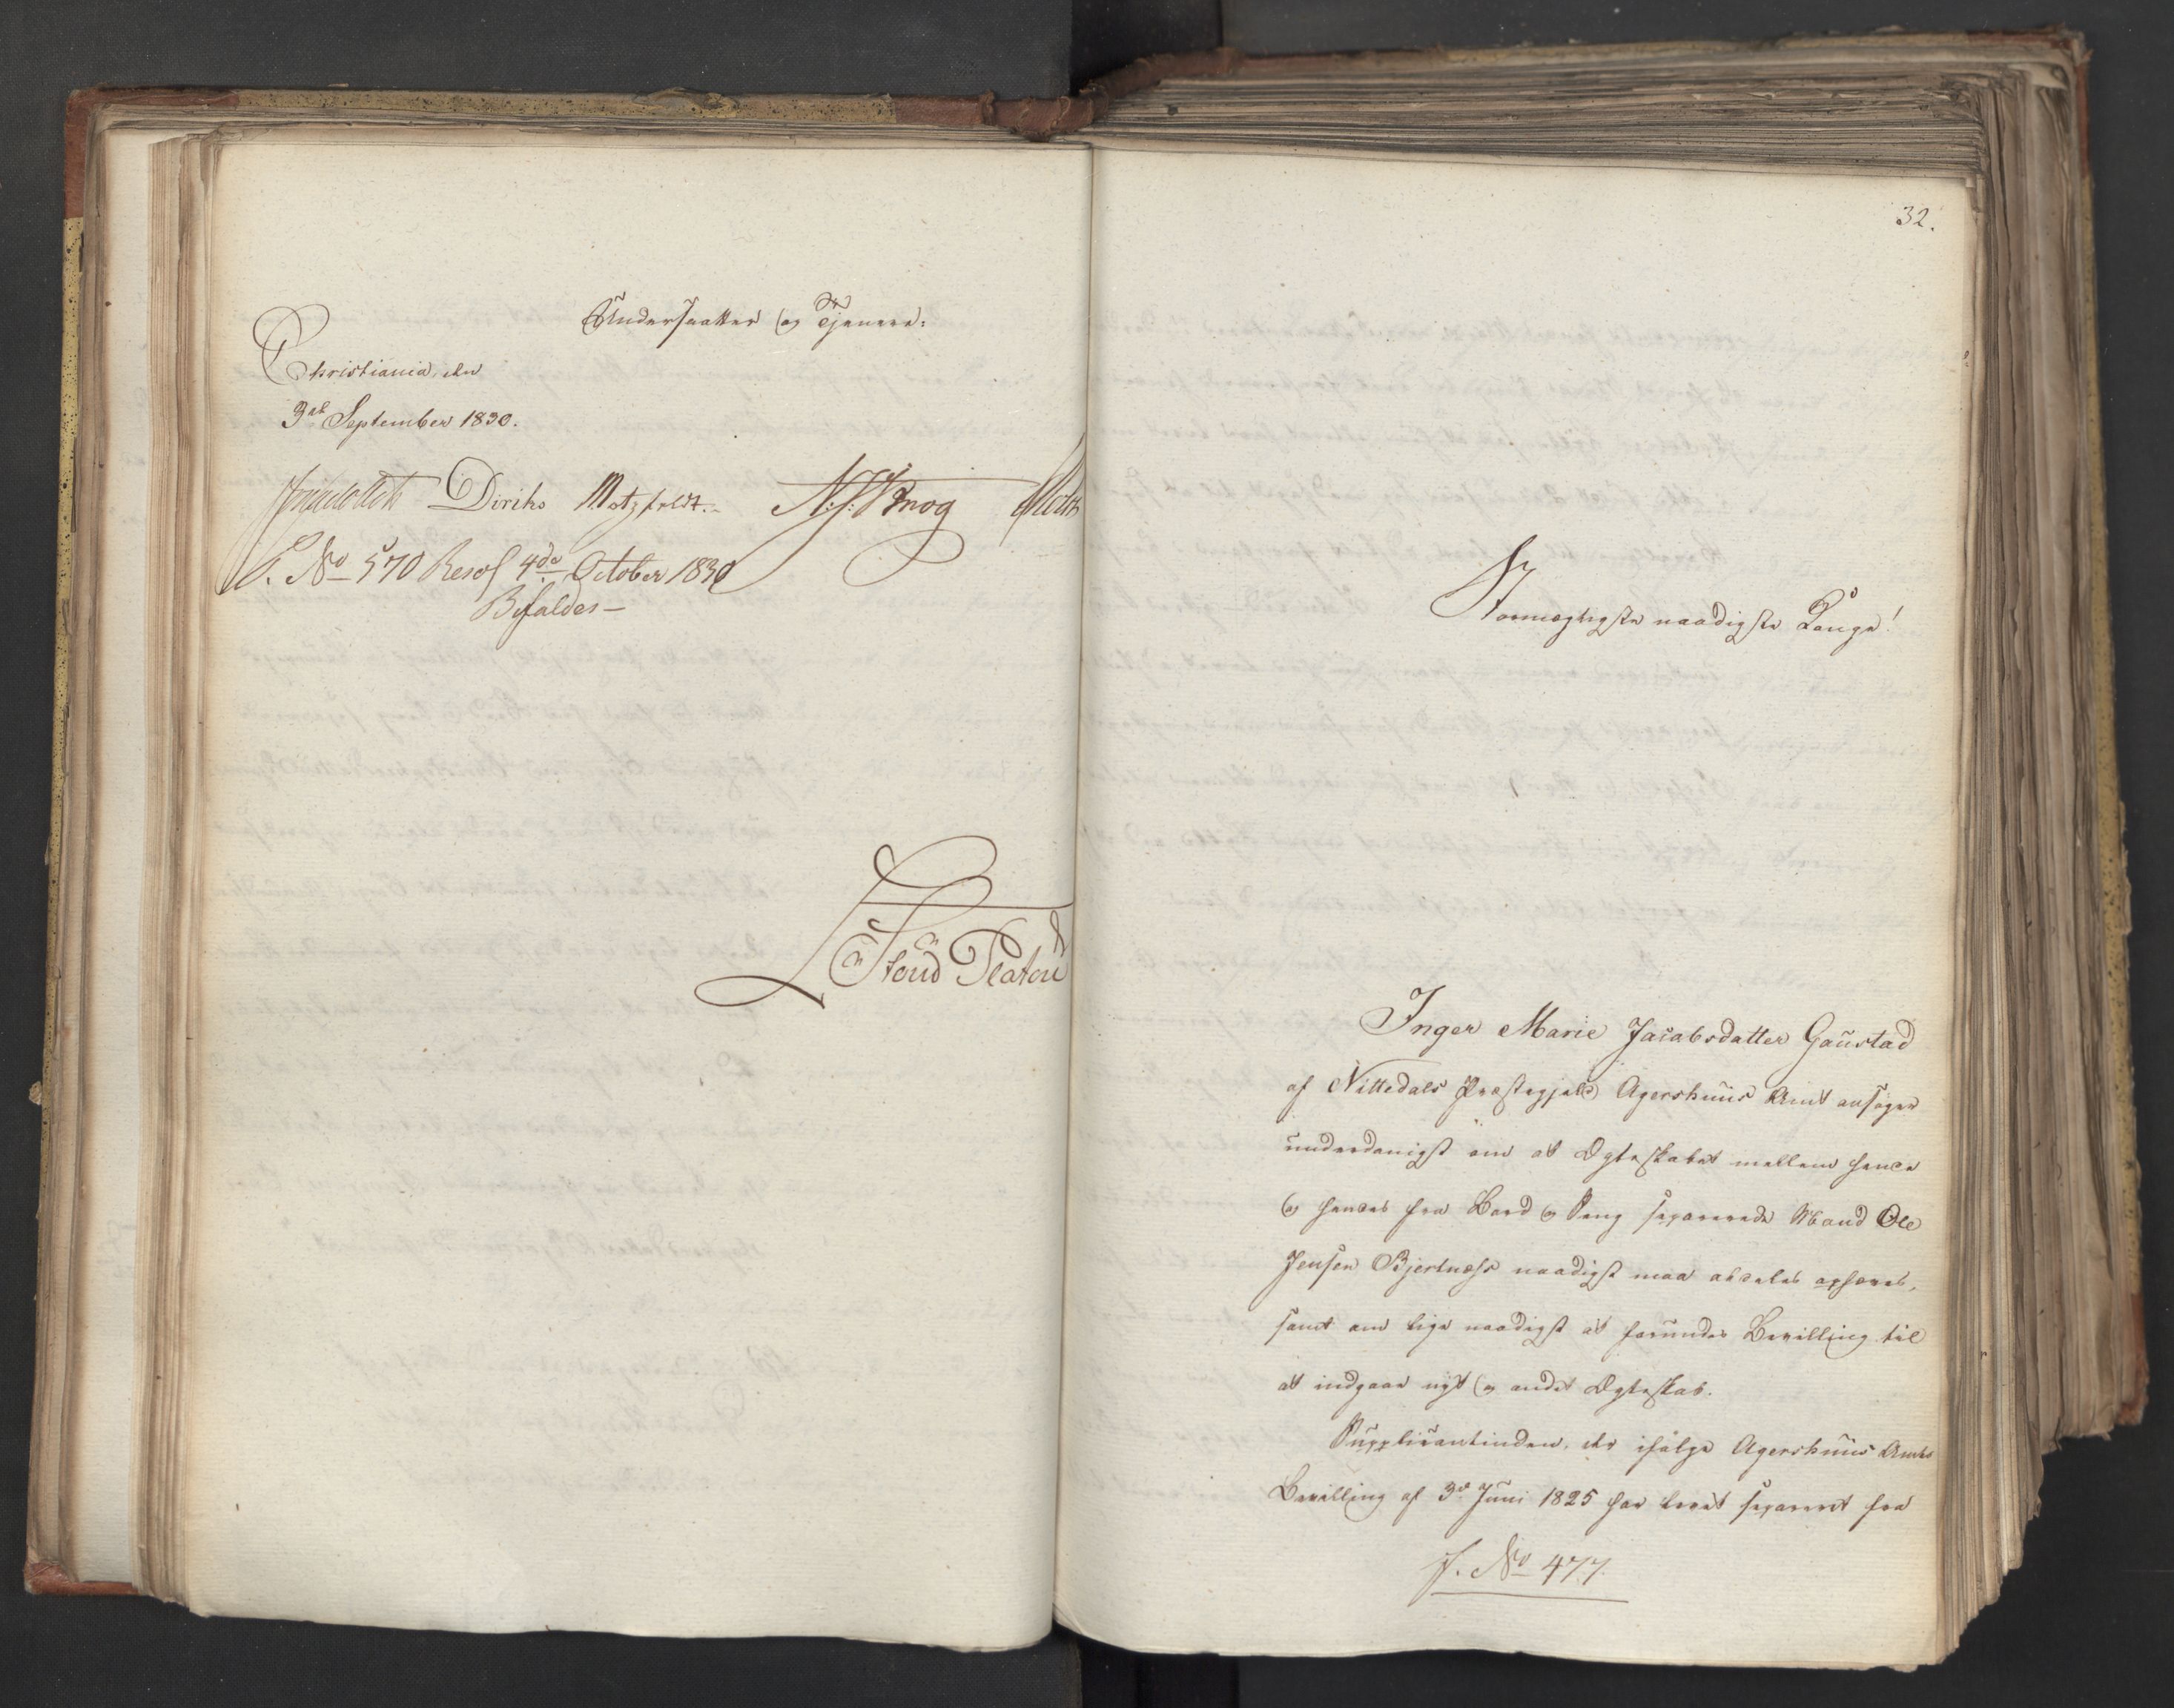 Undersaatter og Tjenere:
Christiania, den
3die September 1830.
Diriks Motzfeldt. N. J. Krog
P. No 570 Resol 4de October 1830
Bifaldes —
Stoud Platou
32.
Stormægtigste naadigste Konge!
Inger Marie Jacobsdatter Gaustad
af Nittedals Præstegjæld Agershuus Amt ansøger
underdanigst om at Ægteskabet mellem hende
og hendes fra Bord og Seng separerede Mand Ole
Jensen Bjertnæss naadigst maa aldeles ophæves,
samt om lige naadigst at forundes Bevilling til
at indgaae nyt og andet Ægteskab.
Supplicantinden, der ifølge Agershuus Amts
Bevilling af 3die Juni 1825 har levet separeret fra
J. No 477.